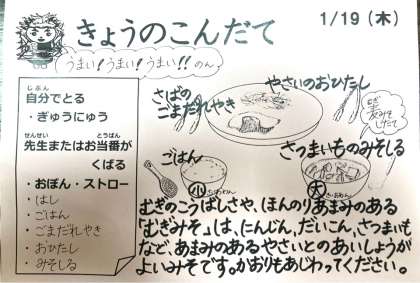 きょうのこんだて
1/19（木）
うまい！うまい！うまい！！のん
自分でとる
じぶん
・ぎゅうにゅう
せんせい
とうばん
先生またはお当番が
くばる
・おぼん・ストロー
・はし
・ごはん
・ごまだれやき
・おひたし
・みそしる
さばの
ごまだれやき
やさいのおひたし
ごはん
小
さつまいものみそしる
大
むぎのこうばしさや、ほんのりあまみのある
「むぎみそ」は、にんじん、だいこん、さつまいも
など、あまみのあるやさいとのあいしょうが
よいみそです。かおりもあじわってください。